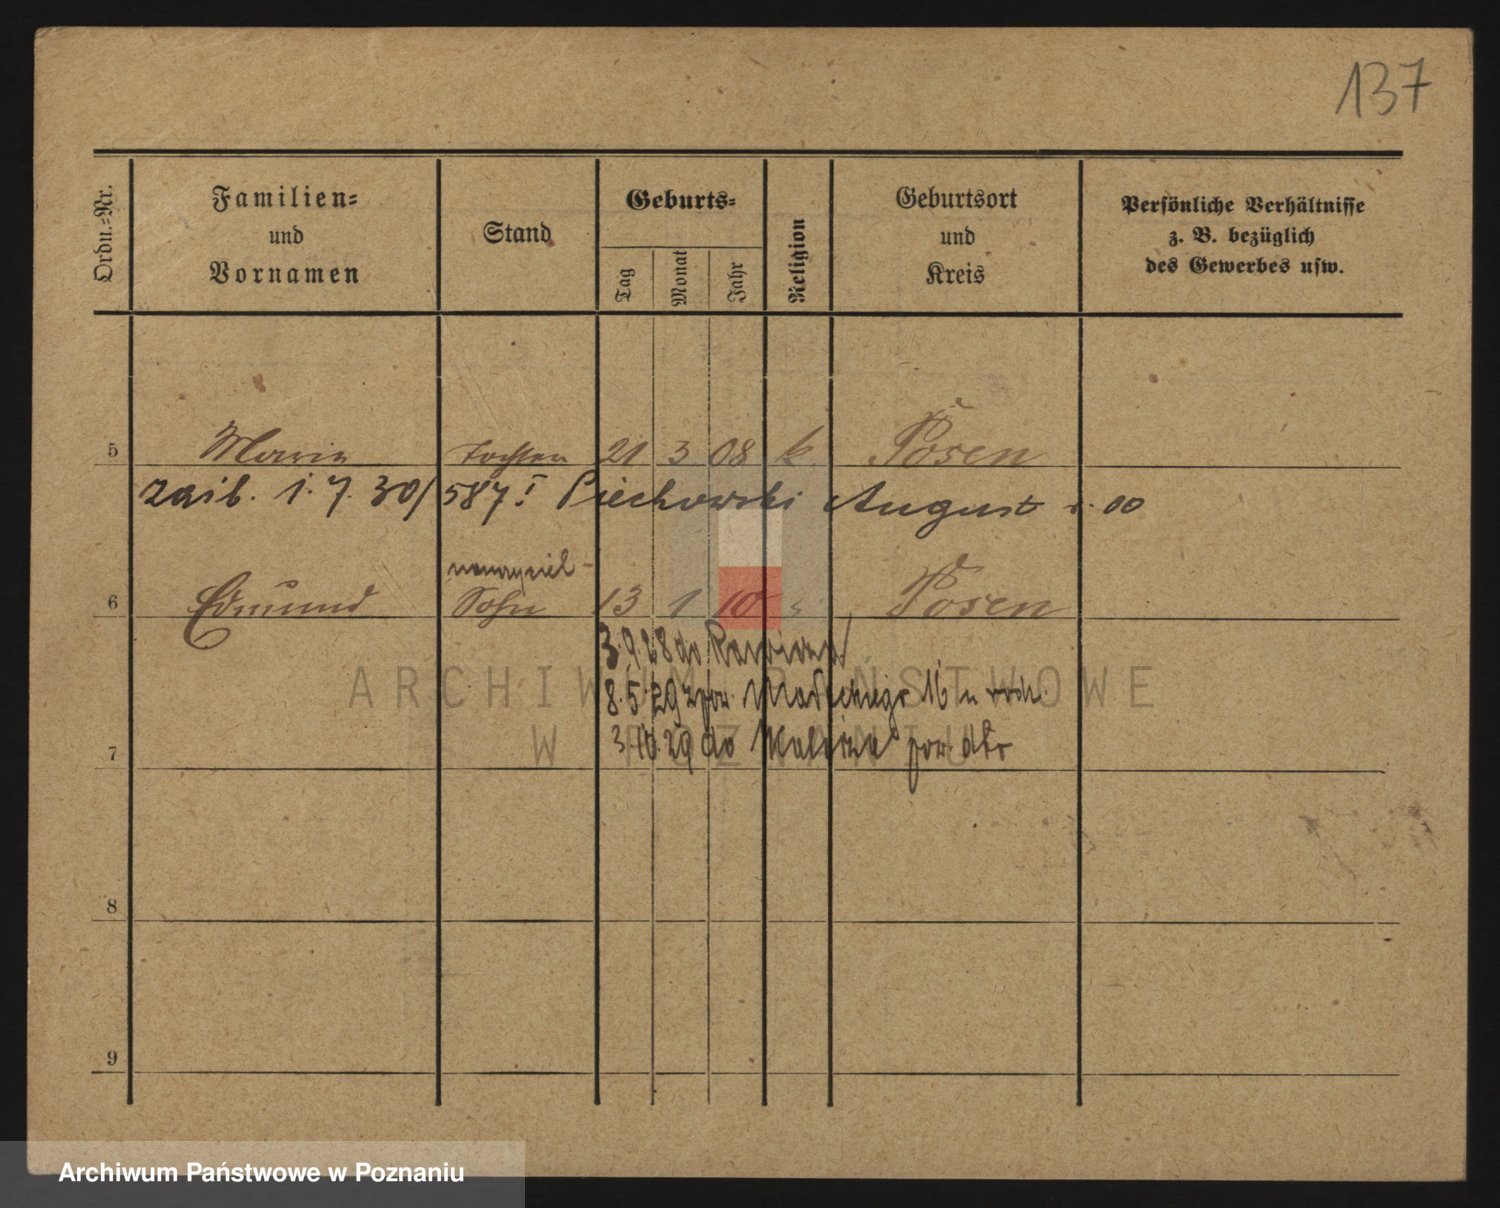 137
Ordn.-Nr.
Familien-
und
Vornamen
Stand
Geburts-
Tag
Monat
Jahr
Religion
Geburtsort
und
Kreis
Persönliche Verhältnisse
z. B. bezüglich
des Gewerbes usw.
5 Maria Tochter 21 3 08 k Posen
1.7.30/587 I Piechowski August 00
6 Edmund Sohn 13 1 10 Posen
3.9.28 do
8.5.29 16
ARCHIWUM PAŃSTWOWE
3.10.29 do
W POZNANIU
7
8
9
Archiwum Państwowe w Poznaniu